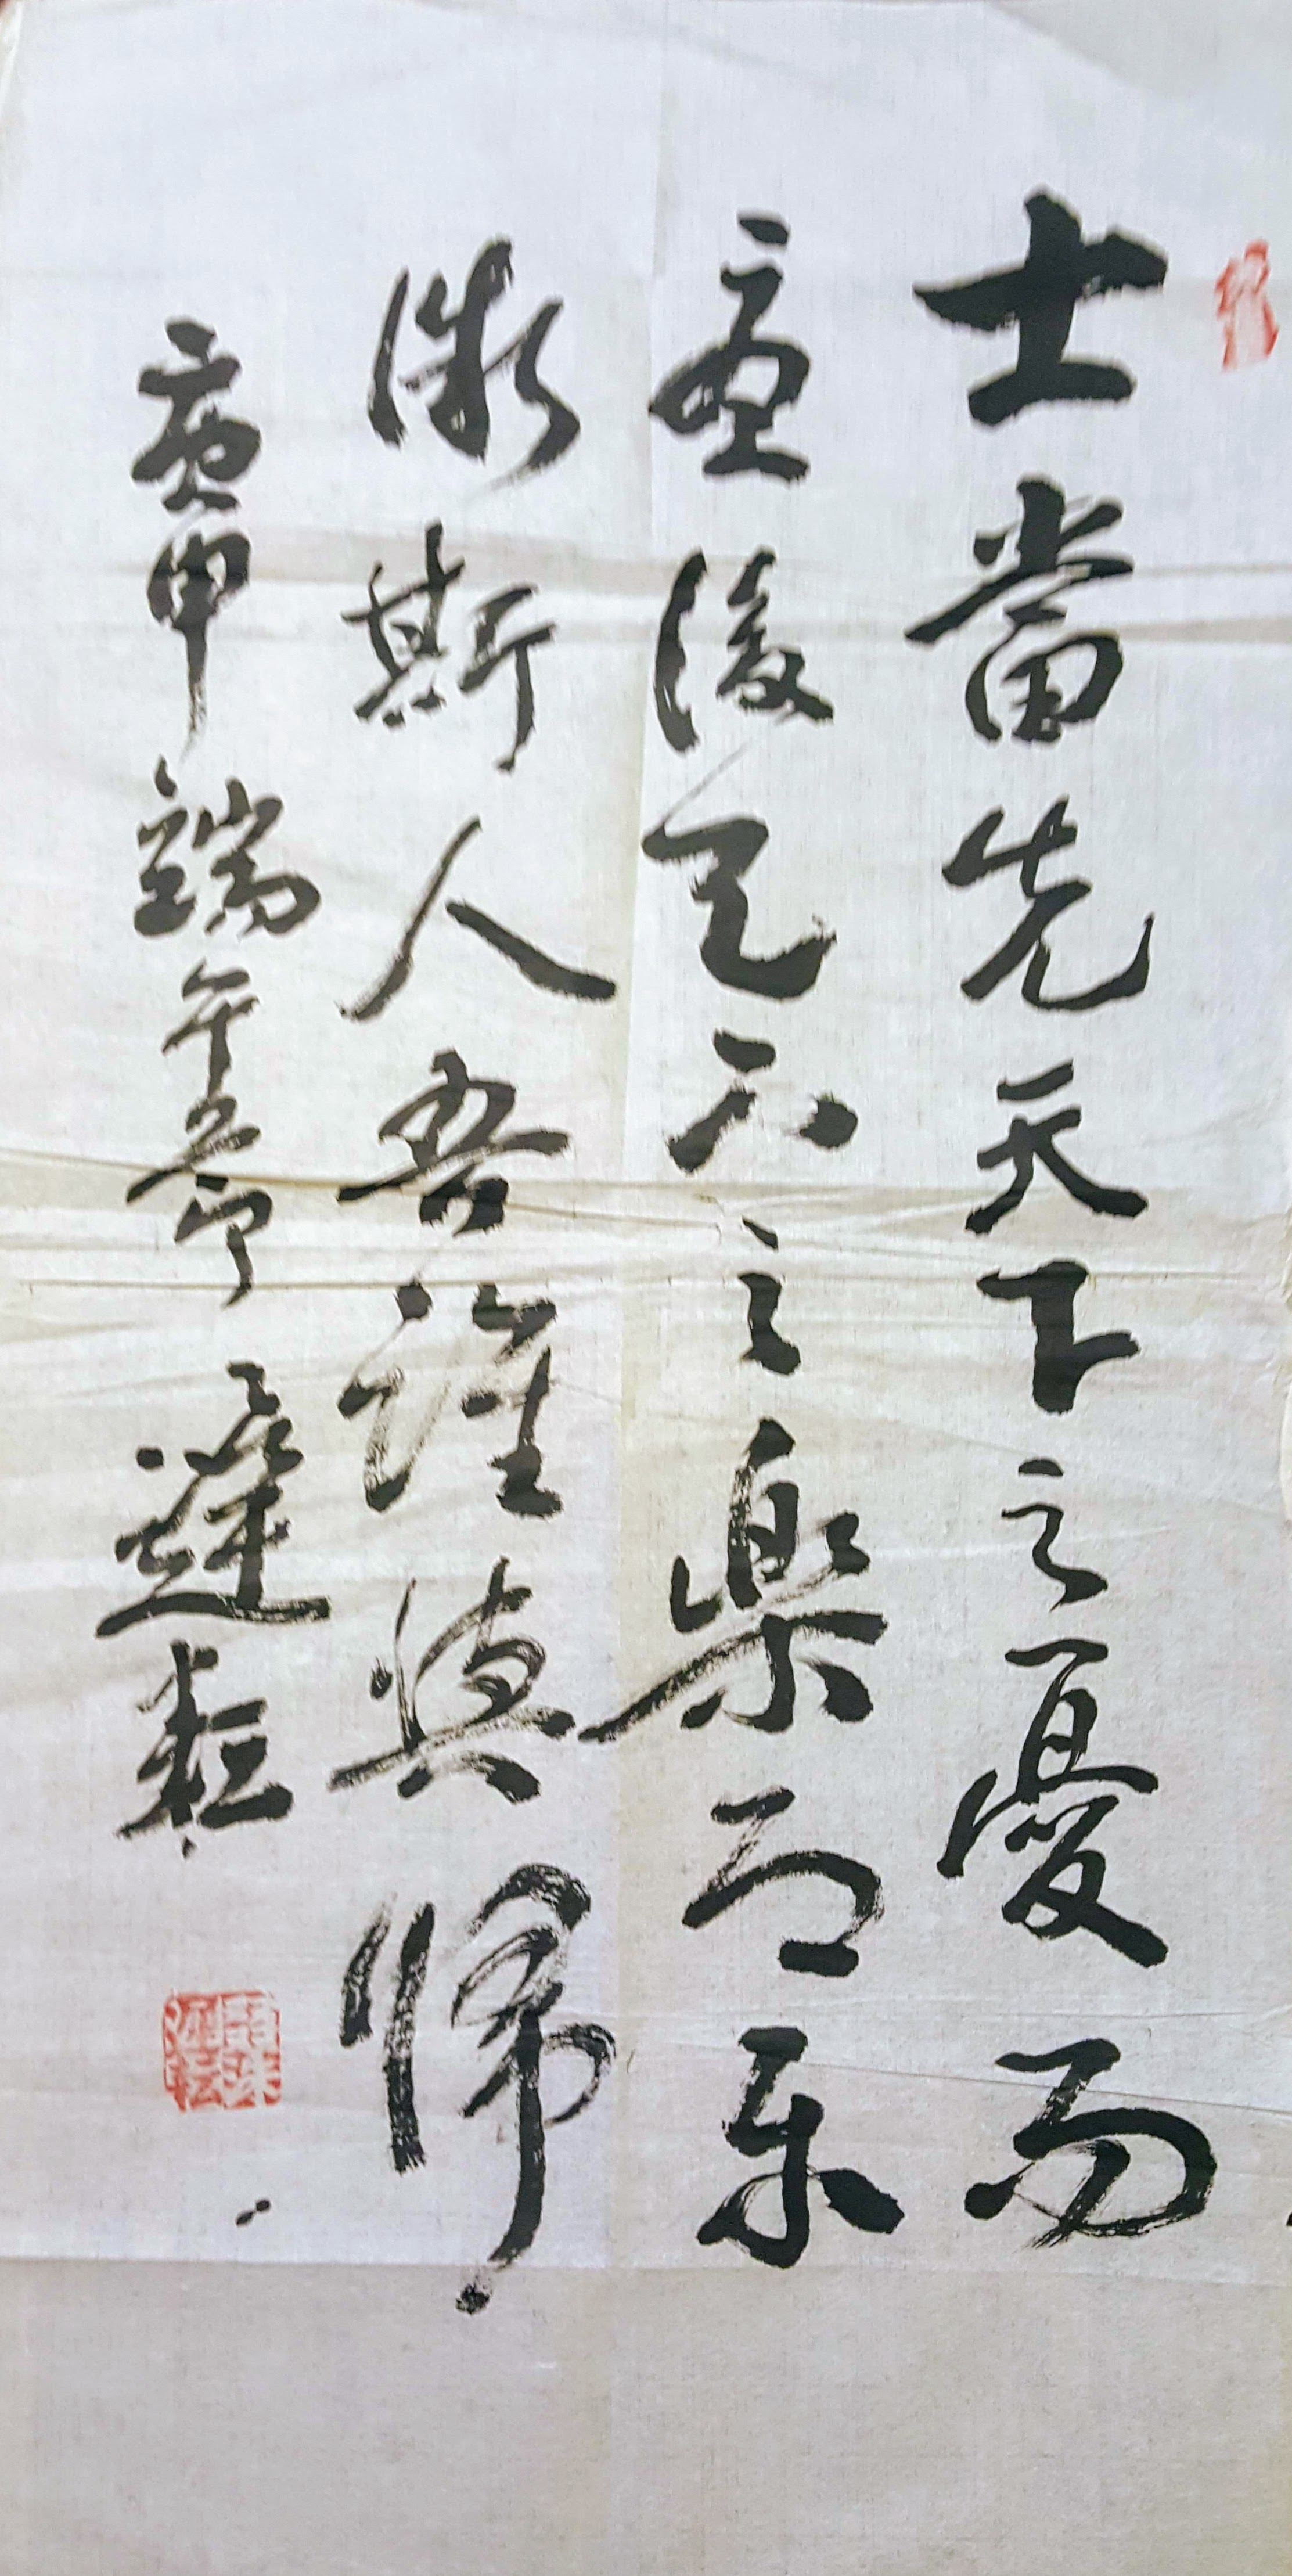 士當先天下之憂而
憂後天下之樂而樂
微斯人吾誰與歸
庚申端午